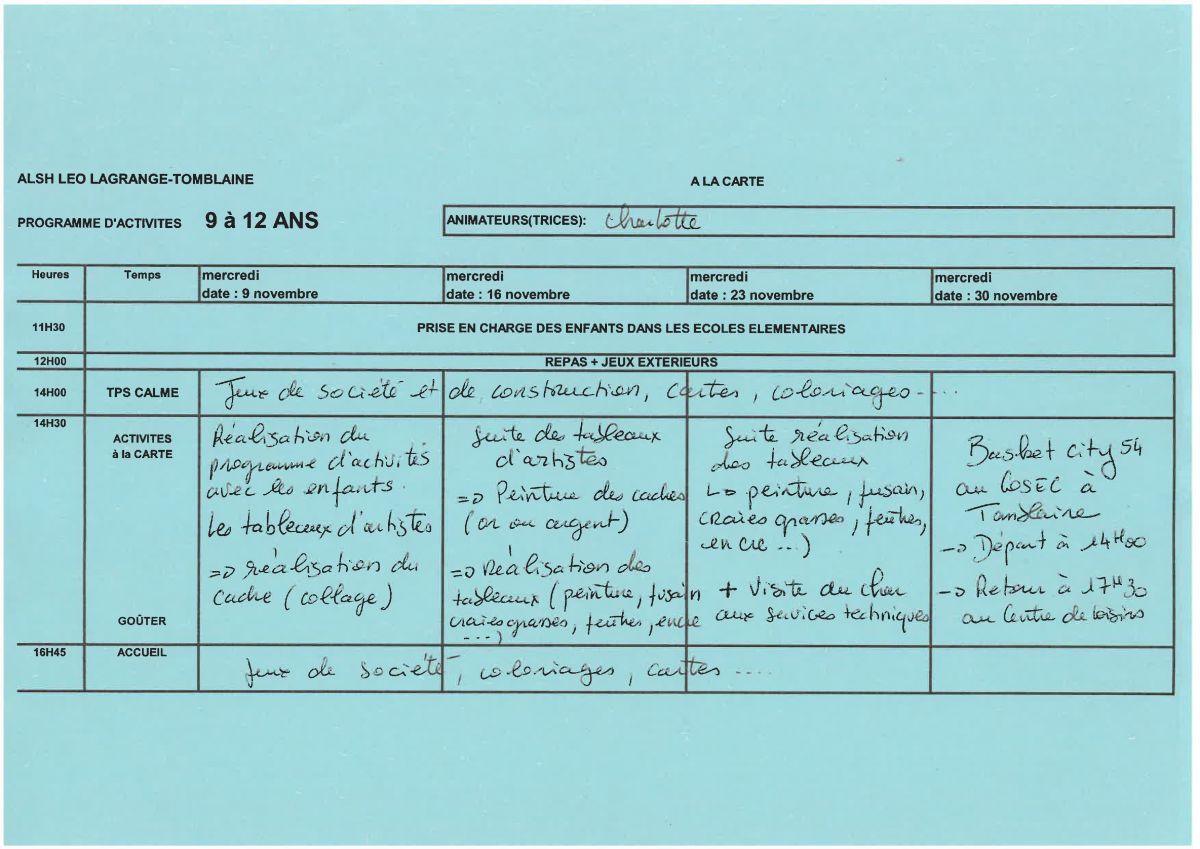 ALSH LEO LAGRANGE-TOMBLAINE
A LA CARTE
PROGRAMME D'ACTIVITES 9 à 12 ANS
ANIMATEURS(TRICES): Charlotte
Heures
Temps
mercredi
date : 9 novembre
mercredi
date : 16 novembre
mercredi
date : 23 novembre
mercredi
date : 30 novembre
11H30
PRISE EN CHARGE DES ENFANTS DANS LES ECOLES ELEMENTAIRES
12H00
REPAS + JEUX EXTERIEURS
14H00
TPS CALME
Jeux de société et de construction, cartes, coloriages....
14H30
ACTIVITES
à la CARTE
GOÛTER
Réalisation du
programme d'activités
avec les enfants.
Les tableaux d'artistes
=> réalisation du
cadre (collage)
Suite des tableaux
d'artistes
=> Peinture des cadres
(or ou argent)
=> Réalisation des
tableaux (peinture, fusain
craies grasses, feutres, encre
....)
Suite réalisation
des tableaux
↳ peinture, fusain,
craies grasses, feutres,
encre ...)
+ Visite du char
aux services techniques
Basket City 54
au COSEC à
Tomblaine
-> Départ à 14H00
-> Retour à 17H30
au Centre de loisirs
16H45
ACCUEIL
Jeux de société, coloriages, cartes ....